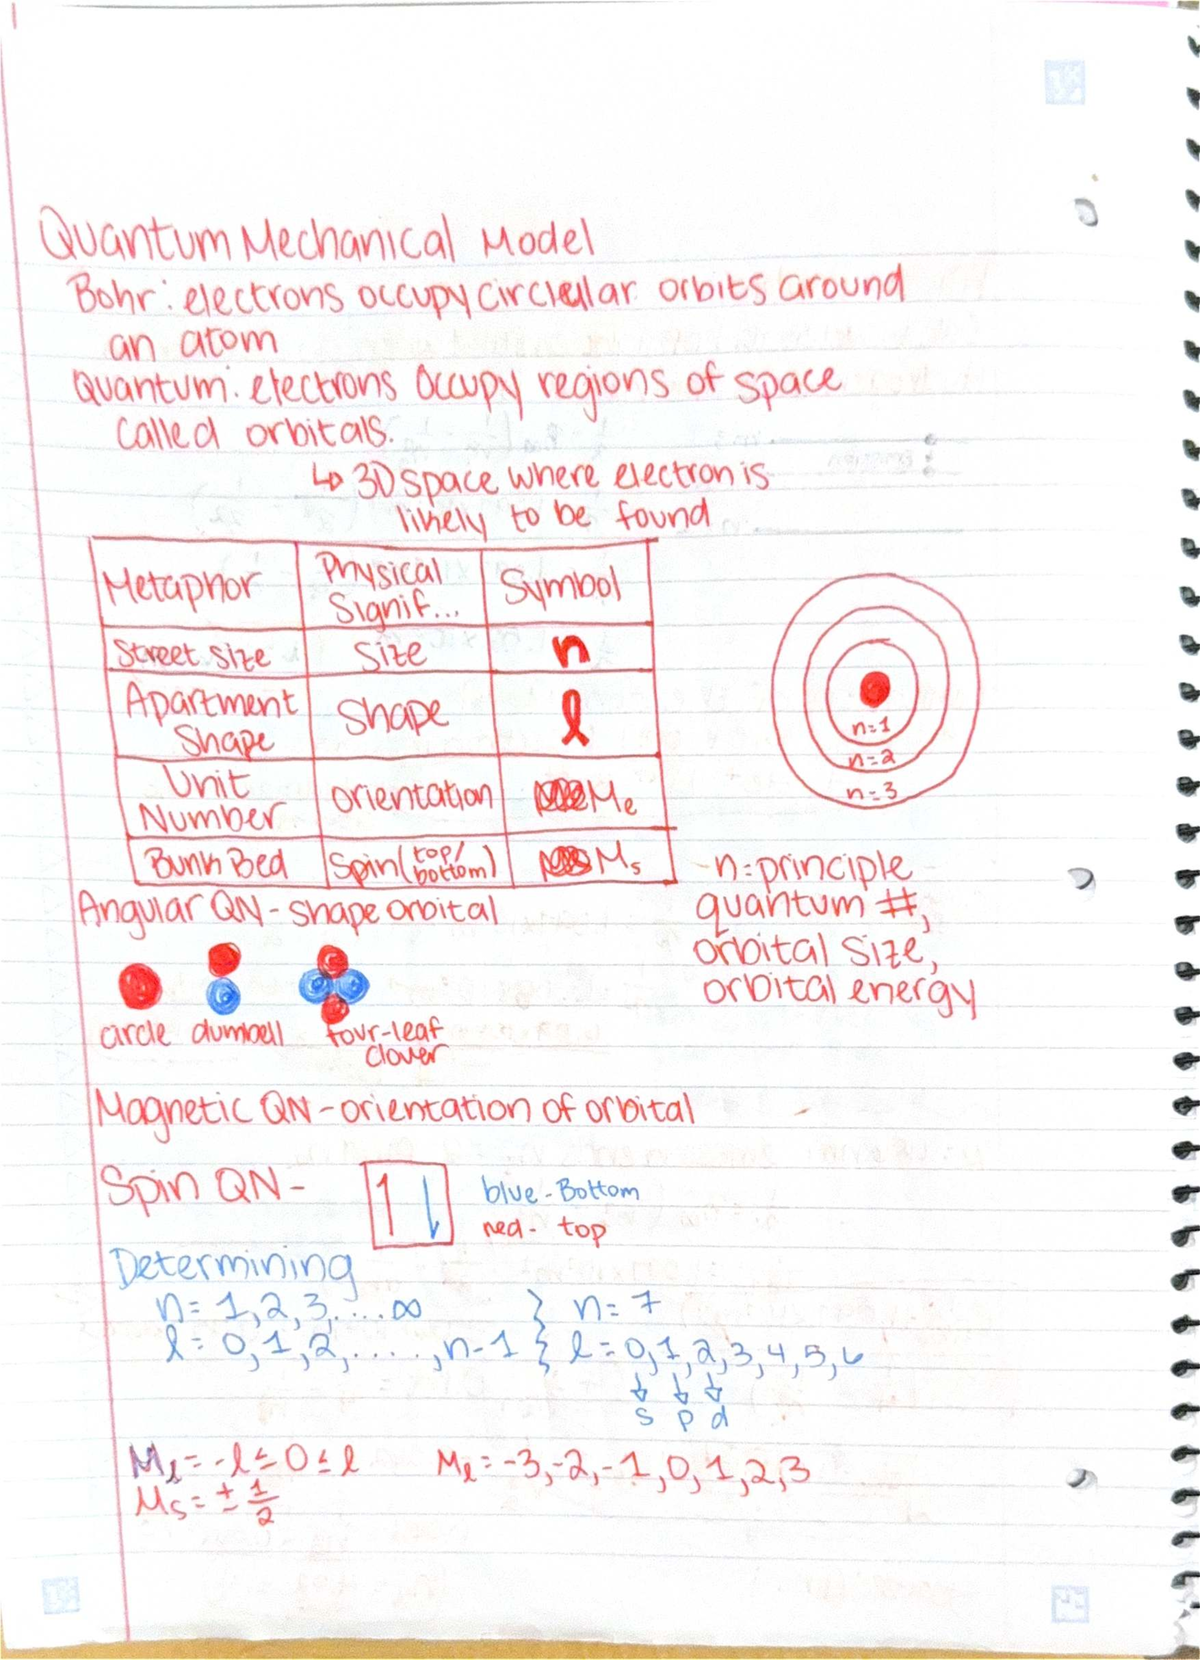 Quantum Mechanical Model
Bohr: electrons occupy circular orbits around
an atom
Quantum: electrons occupy regions of space
called orbitals.
↳ 3D space where electron is
likely to be found
Metaphor Physical Signif... Symbol
Street size Size n
Apartment Shape Shape l
Unit Number orientation Mℓ
Bunk Bed Spin (top/bottom) Ms
n=1
n=2
n=3
n=principle
quantum #,
orbital size,
orbital energy
Angular QN - shape orbital
circle dumbell four-leaf
clover
Magnetic QN - orientation of orbital
Spin QN - ↑ ⇂ blue - Bottom
red - top
Determining
n = 1,2,3,....∞ } n = 7
l = 0,1,2,.....,n-1 } l = 0,1,2,3,4,5,6
↓ ↓ ↓
s p d
Mℓ = -l ≤ 0 ≤ l Mℓ = -3,-2,-1,0,1,2,3
Ms = ± 1/2